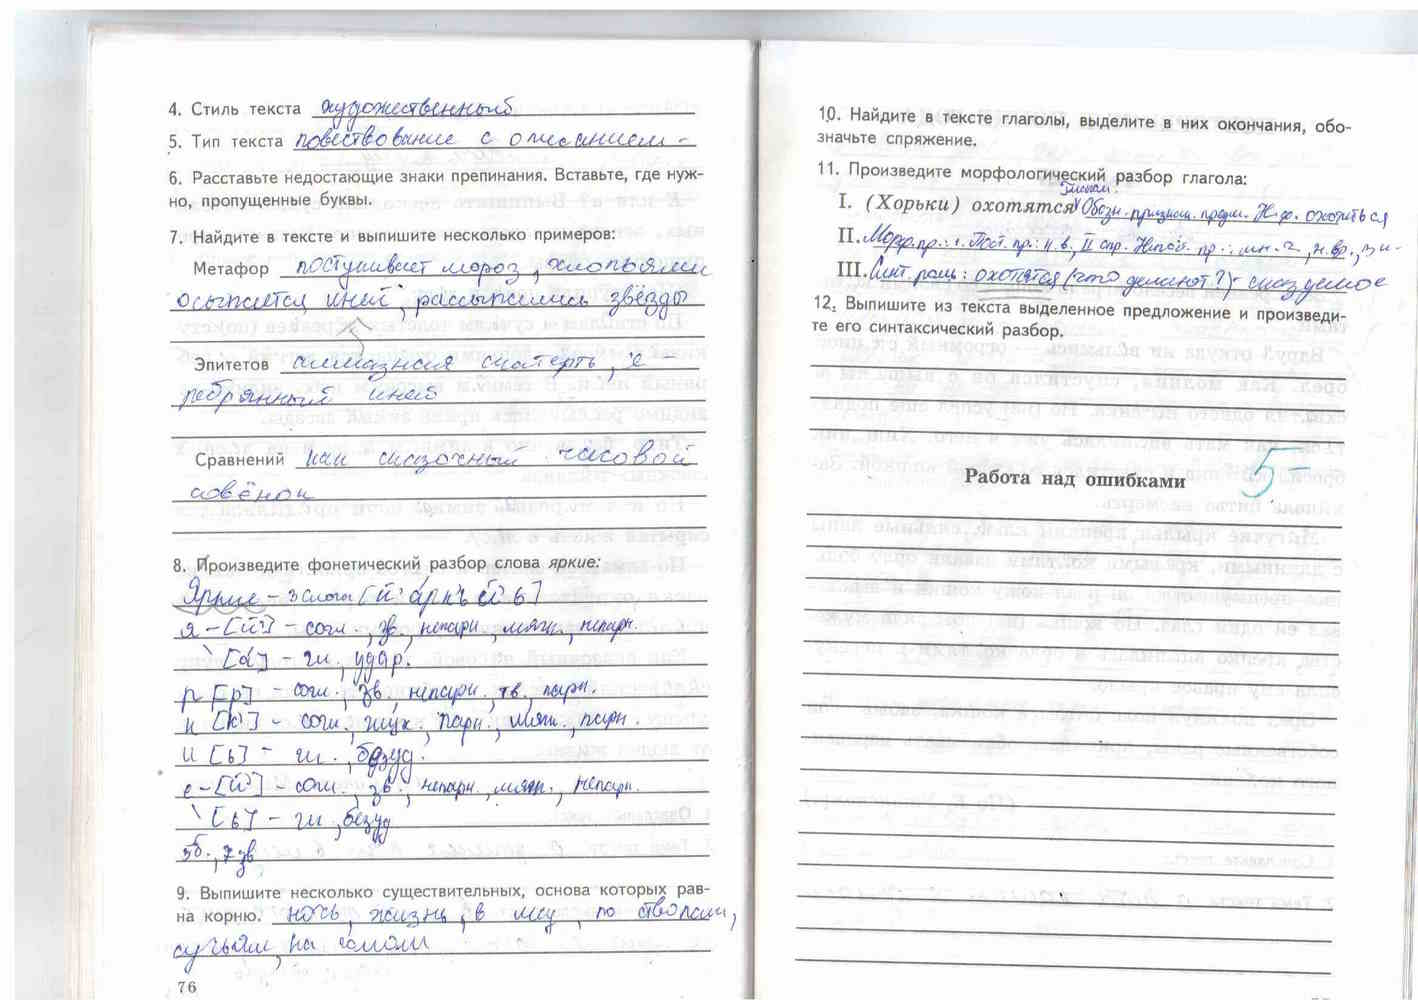 4. Стиль текста художественный
5. Тип текста повествование с описанием
6. Расставьте недостающие знаки препинания. Вставьте, где нуж-
но, пропущенные буквы.
7. Найдите в тексте и выпишите несколько примеров:
Метафор постукивает мороз, хлопьями
осыпается иней, рассыпались звёзды
Эпитетов алмазная скатерть, се-
ребрянный иней
Сравнений как сказочный часовой
совёнок
8. Произведите фонетический разбор слова яркие:
Яркие – 3 слога [й'аркьй'ь]
я – [й'] – согл., зв., непарн., мягк., непарн.
[а] – гл., удар.
р [р] – согл., зв., непарн., тв., парн.
к [к'] – согл., глух., парн., мягк., парн.
и [ь] – гл., безуд.
е – [й'] – согл., зв., непарн., мягк., непарн.
[ь] – гл., безуд
5б., 7зв
9. Выпишите несколько существительных, основа которых рав-
на корню. ночь, жизнь, в лесу, по стволам,
сучьям, на
76
10. Найдите в тексте глаголы, выделите в них окончания, обо-
значьте спряжение.
11. Произведите морфологический разбор глагола:
Глагол.
I. (Хорьки) охотятся Обозн. признак предм. Н.ф. охотиться
II. Морф.пр.: 1. Пост. пр.: н.в., II спр. Непост. пр.: мн.ч., н.вр., 3 л.
III. Синт. роль: охотятся (что делают?) – сказуемое
12. Выпишите из текста выделенное предложение и произведи-
те его синтаксический разбор.
Работа над ошибками
5-